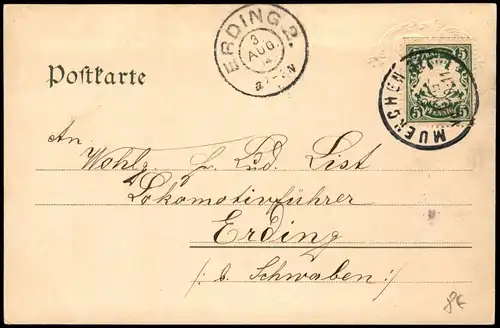 ERDING 2.
3
AUG.
5
PFENNIG
5
MUENCHEN
Postkarte
An
Wohlg. Hr. Lud. List
Lokomotivführer
Erding
/: b. Schwaben :/
8€